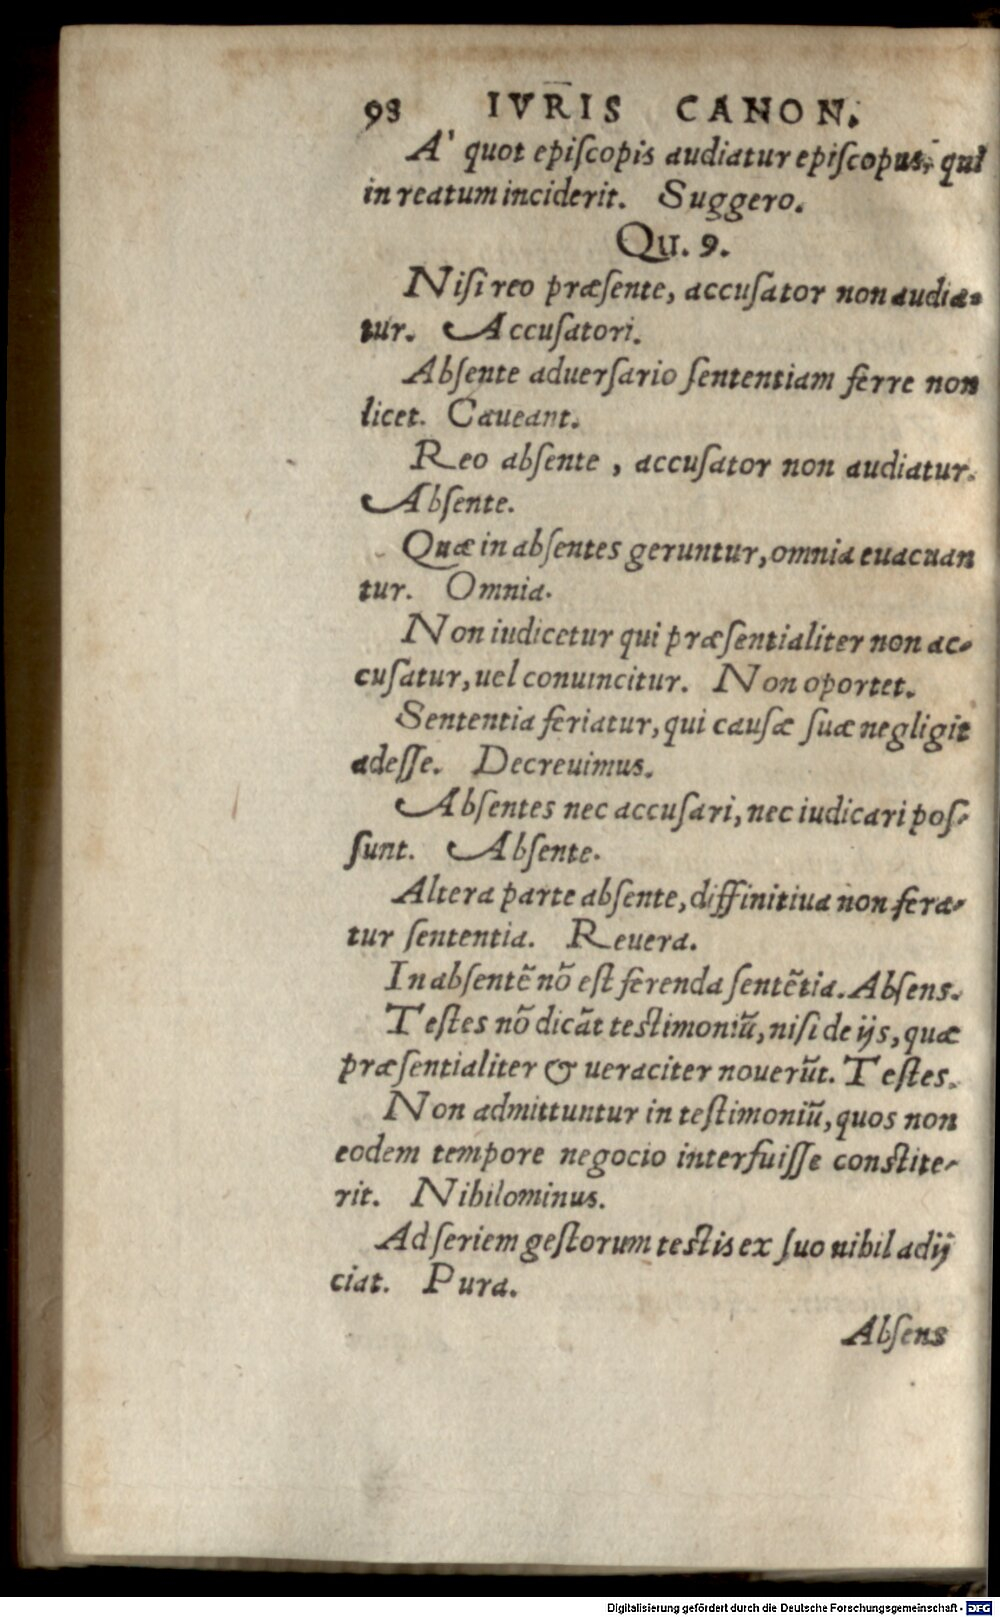 98 IVRIS CANON.
A' quot epiſcopis audiatur epiſcopus, qui
in reatum inciderit. Suggero.
Qu. 9.
Niſi reo præſente, accuſator non audia-
tur. Accuſatori.
Abſente aduerſario ſententiam ferre non
licet. Caueant.
Reo abſente, accuſator non audiatur.
Abſente.
Quæ in abſentes geruntur, omnia euacuan
tur. Omnia.
Non iudicetur qui præſentialiter non ac-
cuſatur, uel conuincitur. Non oportet.
Sententia feriatur, qui cauſæ ſuæ negligit
adeſſe. Decreuimus.
Abſentes nec accuſari, nec iudicari poſ-
ſunt. Abſente.
Altera parte abſente, diffinitiua non fera-
tur ſententia. Reuera.
In abſentē nō eſt ferenda ſentētia. Abſens.
Teſtes nō dicāt teſtimoniū, niſi de ijs, quæ
præſentialiter & ueraciter nouerūt. Teſtes.
Non admittuntur in teſtimoniū, quos non
eodem tempore negocio interfuiſſe conſtite-
rit. Nihilominus.
Ad ſeriem geſtorum teſtis ex ſuo nihil adij
ciat. Pura.
Abſens
Digitalisierung gefördert durch die Deutsche Forschungsgemeinschaft - DFG